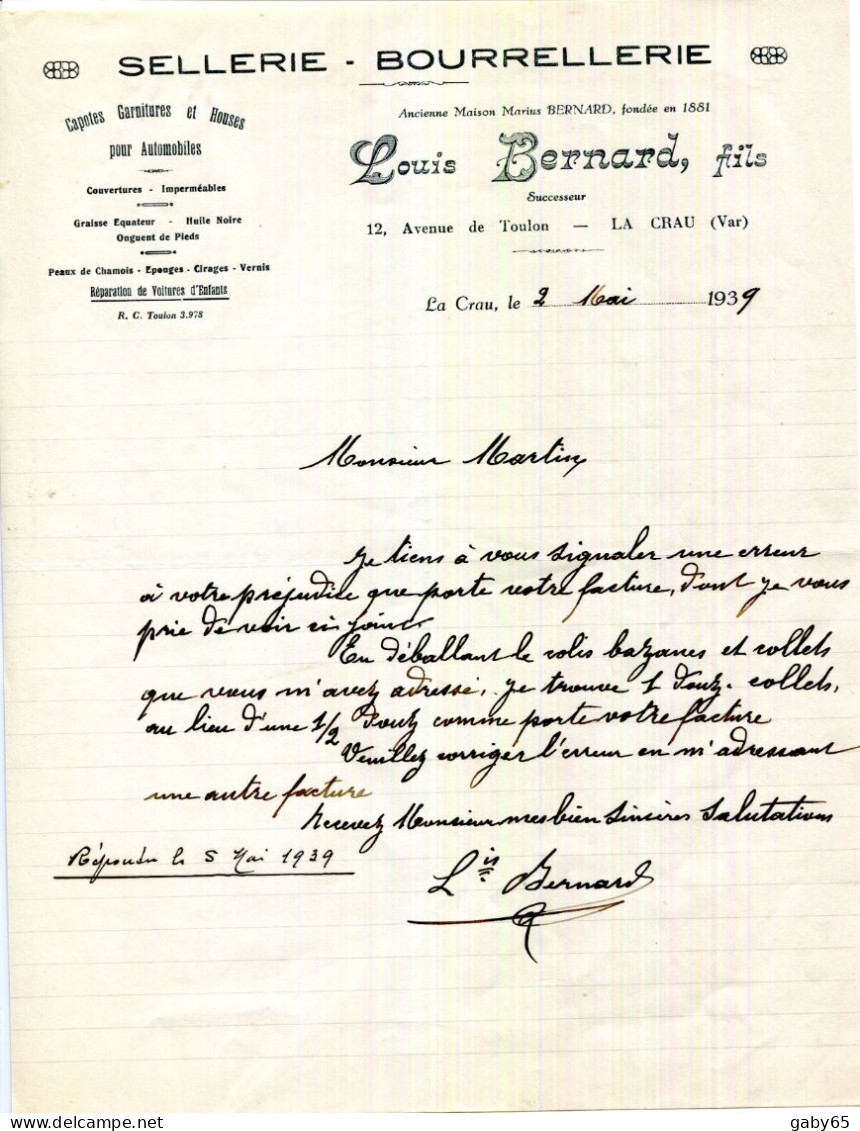 SELLERIE - BOURRELLERIE
Capotes Garnitures et Housses
pour Automobiles
Couvertures - Imperméables
Graisse Equateur - Huile Noire
Onguent de Pieds
Peaux de Chamois - Eponges - Cirages - Vernis
Réparation de Voitures d'Enfants
R. C. Toulon 3.978
Ancienne Maison Marius BERNARD, fondée en 1881
Louis Bernard, fils
Successeur
12, Avenue de Toulon — LA CRAU (Var)
La Crau, le 2 Mai 1939
Monsieur Martin
Je tiens à vous signaler une erreur
à votre préjudice que porte votre facture, dont je vous
prie de voir ci joint
En déballant le colis bazanes et collets
que vous m'avez adressé, je trouve 1 douz. collets,
au lieu d'une 1/2 douz comme porte votre facture
Veuillez corriger l'erreur en m'adressant
une autre facture
Recevez Monsieur mes bien sincères salutations
Répondu le 5 Mai 1939
Lis Bernard
delcampe.net
gaby65